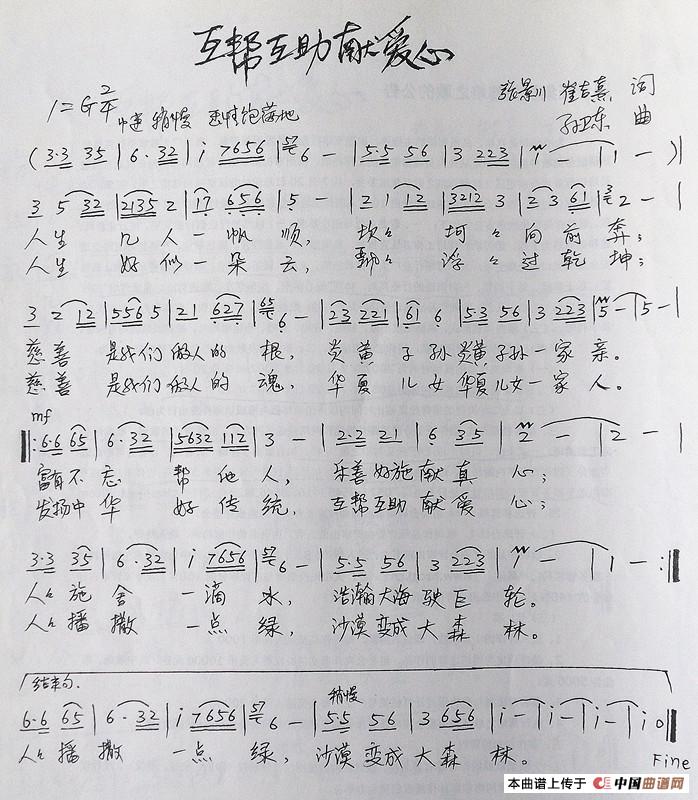 互帮互助献爱心
1=G 2/4 中速 稍慢 张景川 崔吉熹 词
孙卫东 曲
(3·3 35|6·32|i 7656|6-|5·5 56|3 223|1-|1-)|
3 5 32|2135 2|17 656|5-|2 1 12|3212 3|23 61|2-|
人生 几人 帆顺, 坎々 坷々向前奔;
人生 好似一朵云, 飘々 浮々过乾坤;
3 2 12|556 5|21 627|6-|23 221|61 6|5·3 56|3 223|5-|5-|
慈善 是我们做人的 根, 炎黄 子孙炎黄子孙一家 亲。
慈善 是我们做人的 魂, 华夏 儿女华夏儿女一家 人。
mf
‖:6·6 65|6·32|5632 112|3-|2·2 21|6 35|2-|2-|
富有不忘 帮他人, 乐善好施献真 心;
发扬中华 好传统, 互帮互助献爱 心;
3·3 35|6·32|i 7656|6-|5·5 56|3 223|1-|1-:‖
人々施舍 一滴水, 浩瀚大海驶巨 轮。
人々播撒 一点绿, 沙漠变成大森 林。
结束句. 稍慢
6·6 65|6·32|i 7656|6-|5·5 56|3 656|i-|i-|i-|i0‖
人々播撒 一点 绿, 沙漠变成大森 林。
Fine
本曲谱上传于 中国曲谱网